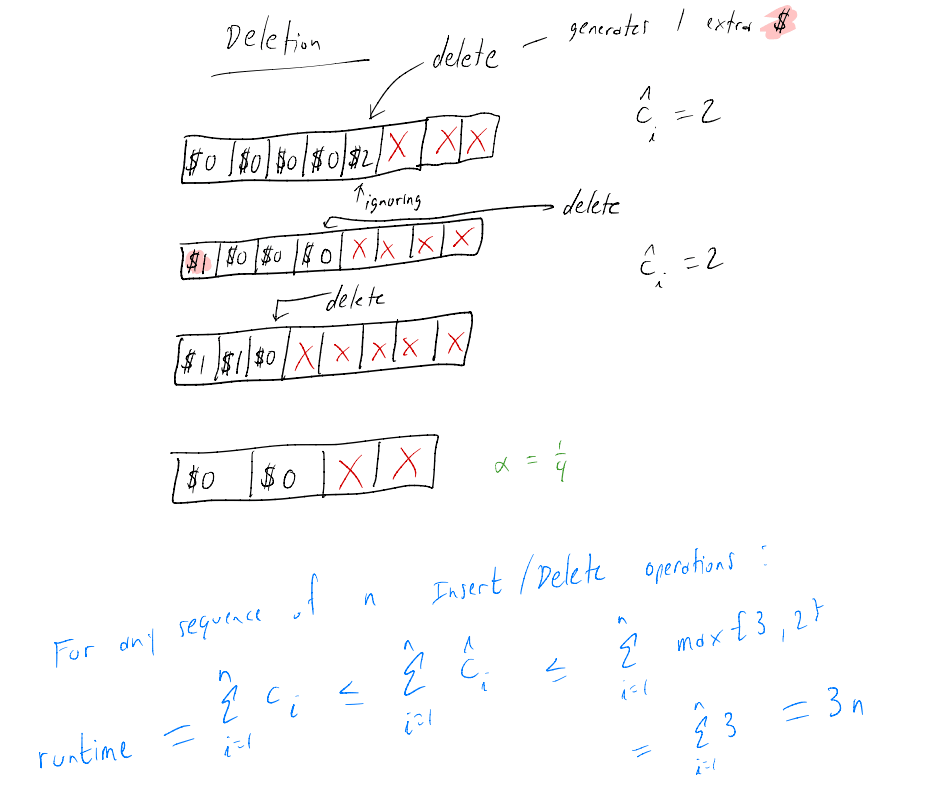 Deletion
delete — generates 1 extra $
ĉᵢ = 2
$0 $0 $0 $0 $2 X X X
↑ ignoring
delete
$1 $0 $0 $0 X X X X
ĉᵢ = 2
delete
$1 $1 $0 X X X X X
$0 $0 X X
α = 1/4
For any sequence of n Insert/Delete operations:
runtime = Σᵢ₌₁ⁿ cᵢ ≤ Σᵢ₌₁ⁿ ĉᵢ ≤ Σᵢ₌₁ⁿ max{3, 2}
= Σᵢ₌₁ⁿ 3 = 3n